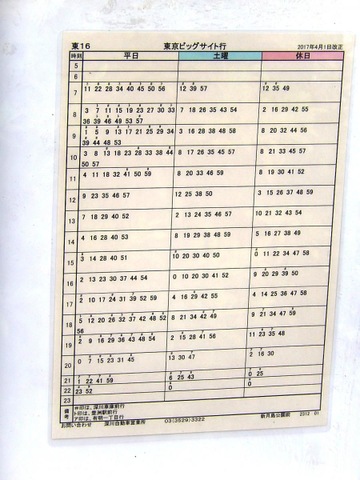 東16 東京ビッグサイト行 2017年4月1日改正
時刻 平日 土曜 休日
5
6
7 11 22 28 34 40 45 50 56 12 39 57 12 35 49
8 3 7 11 15 19 23 27 30 33 7 18 26 35 43 54 2 16 29 42 55
36 39 46 49 53 57
9 1 5 9 13 17 21 25 29 34 3 16 28 38 48 58 8 20 32 44 56
39 44 48 53
10 3 8 13 18 23 28 33 38 44 8 17 26 35 45 57 8 21 33 45 57
50 57
11 4 11 18 32 41 50 59 8 20 33 46 59 8 19 30 41 52
12 9 23 35 46 57 12 25 38 50 3 15 26 37 48 59
13 7 18 29 40 52 2 13 24 35 46 57 10 21 32 43 54
14 4 16 28 40 53 8 19 29 38 48 59 5 16 27 38 49
15 3 14 28 40 51 10 20 30 41 50 0 11 22 34 47 58
16 2 13 23 30 37 44 54 0 10 20 30 41 52 9 20 29 39 50
17 2 10 17 24 31 39 52 59 4 16 29 42 55 0 11 23 34 47 58
18 5 12 20 26 32 37 42 48 52 2 14 24 34 42 49 8 16 26 36 47 59
56
19 1 6 13 20 28 36 44 54 0 16 38 53 11 23 35 48
20 0 7 15 23 31 45 13 30 47 2 21
21 1 22 41 59 6 25 43 0 25
22 23 52
23
備考 サ印は、深川車庫前行
ト印は、豊洲駅前行
ア印は、有明一丁目行
お問い合わせ 深川自動車営業所 03(3529)3322 新月島公園前 2312 01